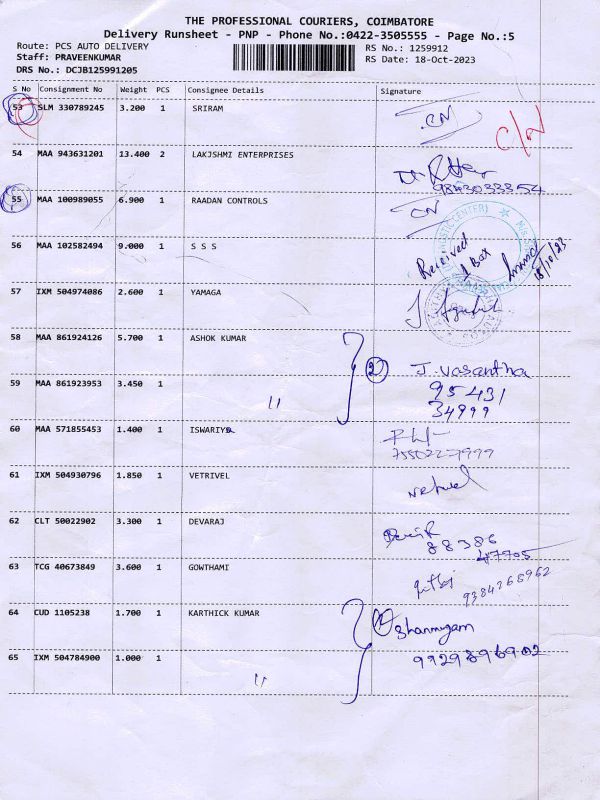 THE PROFESSIONAL COURIERS, COIMBATORE
Delivery Runsheet - PNP - Phone No.:0422-3505555 - Page No.:5
Route: PCS AUTO DELIVERY
RS No.: 1259912
Staff: PRAVEENKUMAR
RS Date: 18-Oct-2023
DRS No.: DCJB125991205
S No Consignment No Weight PCS Consignee Details Signature
53 SLM 330789245 3.200 1 SRIRAM CN C/N
54 MAA 943631201 13.400 2 LAKJSHMI ENTERPRISES
9843033354
55 MAA 100989055 6.900 1 RAADAN CONTROLS CN
56 MAA 102582494 9.000 1 S S S Received
1 Box
18/10/23
57 IXM 504974086 2.600 1 YAMAGA
58 MAA 861924126 5.700 1 ASHOK KUMAR 2 J. Vasantha
59 MAA 861923953 3.450 1 " 95431
34999
60 MAA 571855453 1.400 1 ISWARIYA
7550227999
61 IXM 504930796 1.850 1 VETRIVEL
62 CLT 50022902 3.300 1 DEVARAJ
88386
47705
63 TCG 40673849 3.600 1 GOWTHAMI
9384368962
64 CUD 1105238 1.700 1 KARTHICK KUMAR Shanmugam
65 IXM 504784900 1.000 1 "